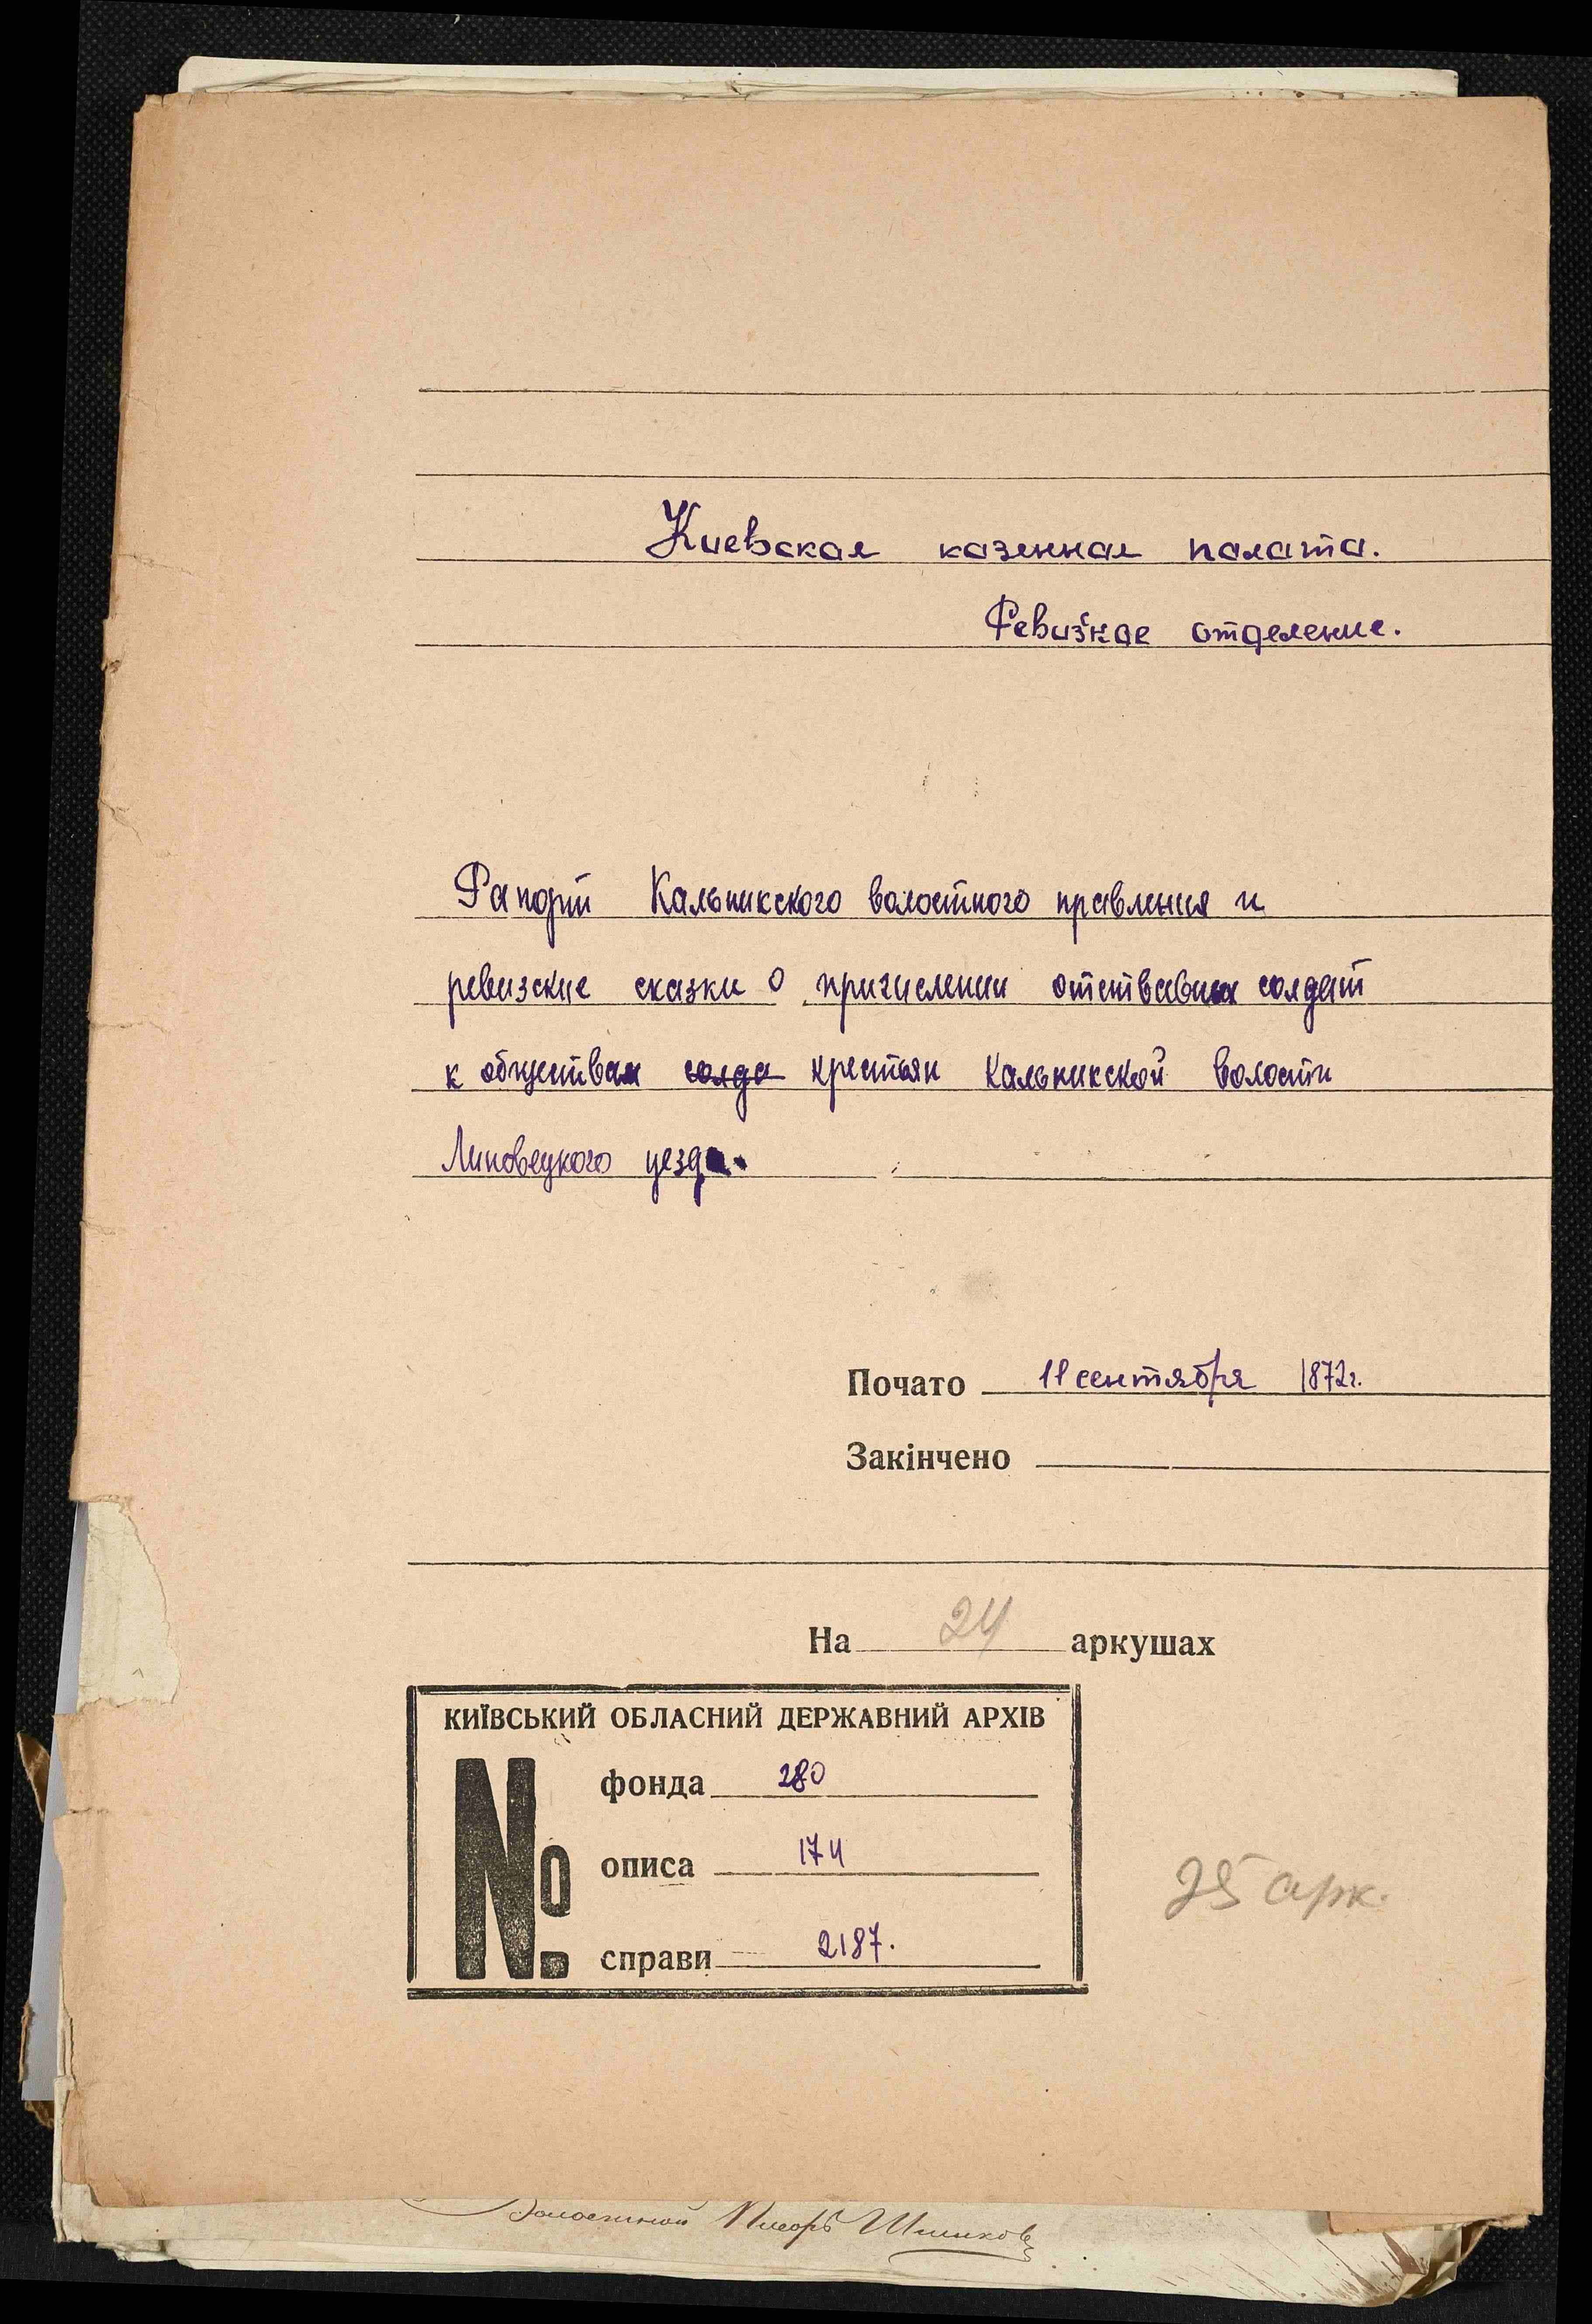 Киевская казенная палата.
Ревизкое отделение.
Рапорт Кальникского волостного правления и
ревизские сказки о причислении отставных солдат
к обществам солда крестьян Кальникской волости
Липовецкого уезда.
Почато 11 сентября 1872г.
Закінчено
На 24 аркушах
КИЇВСЬКИЙ ОБЛАСНИЙ ДЕРЖАВНИЙ АРХІВ
№
фонда 280
описа 174
справи 2187.
25 арк.
Волостной Писарь